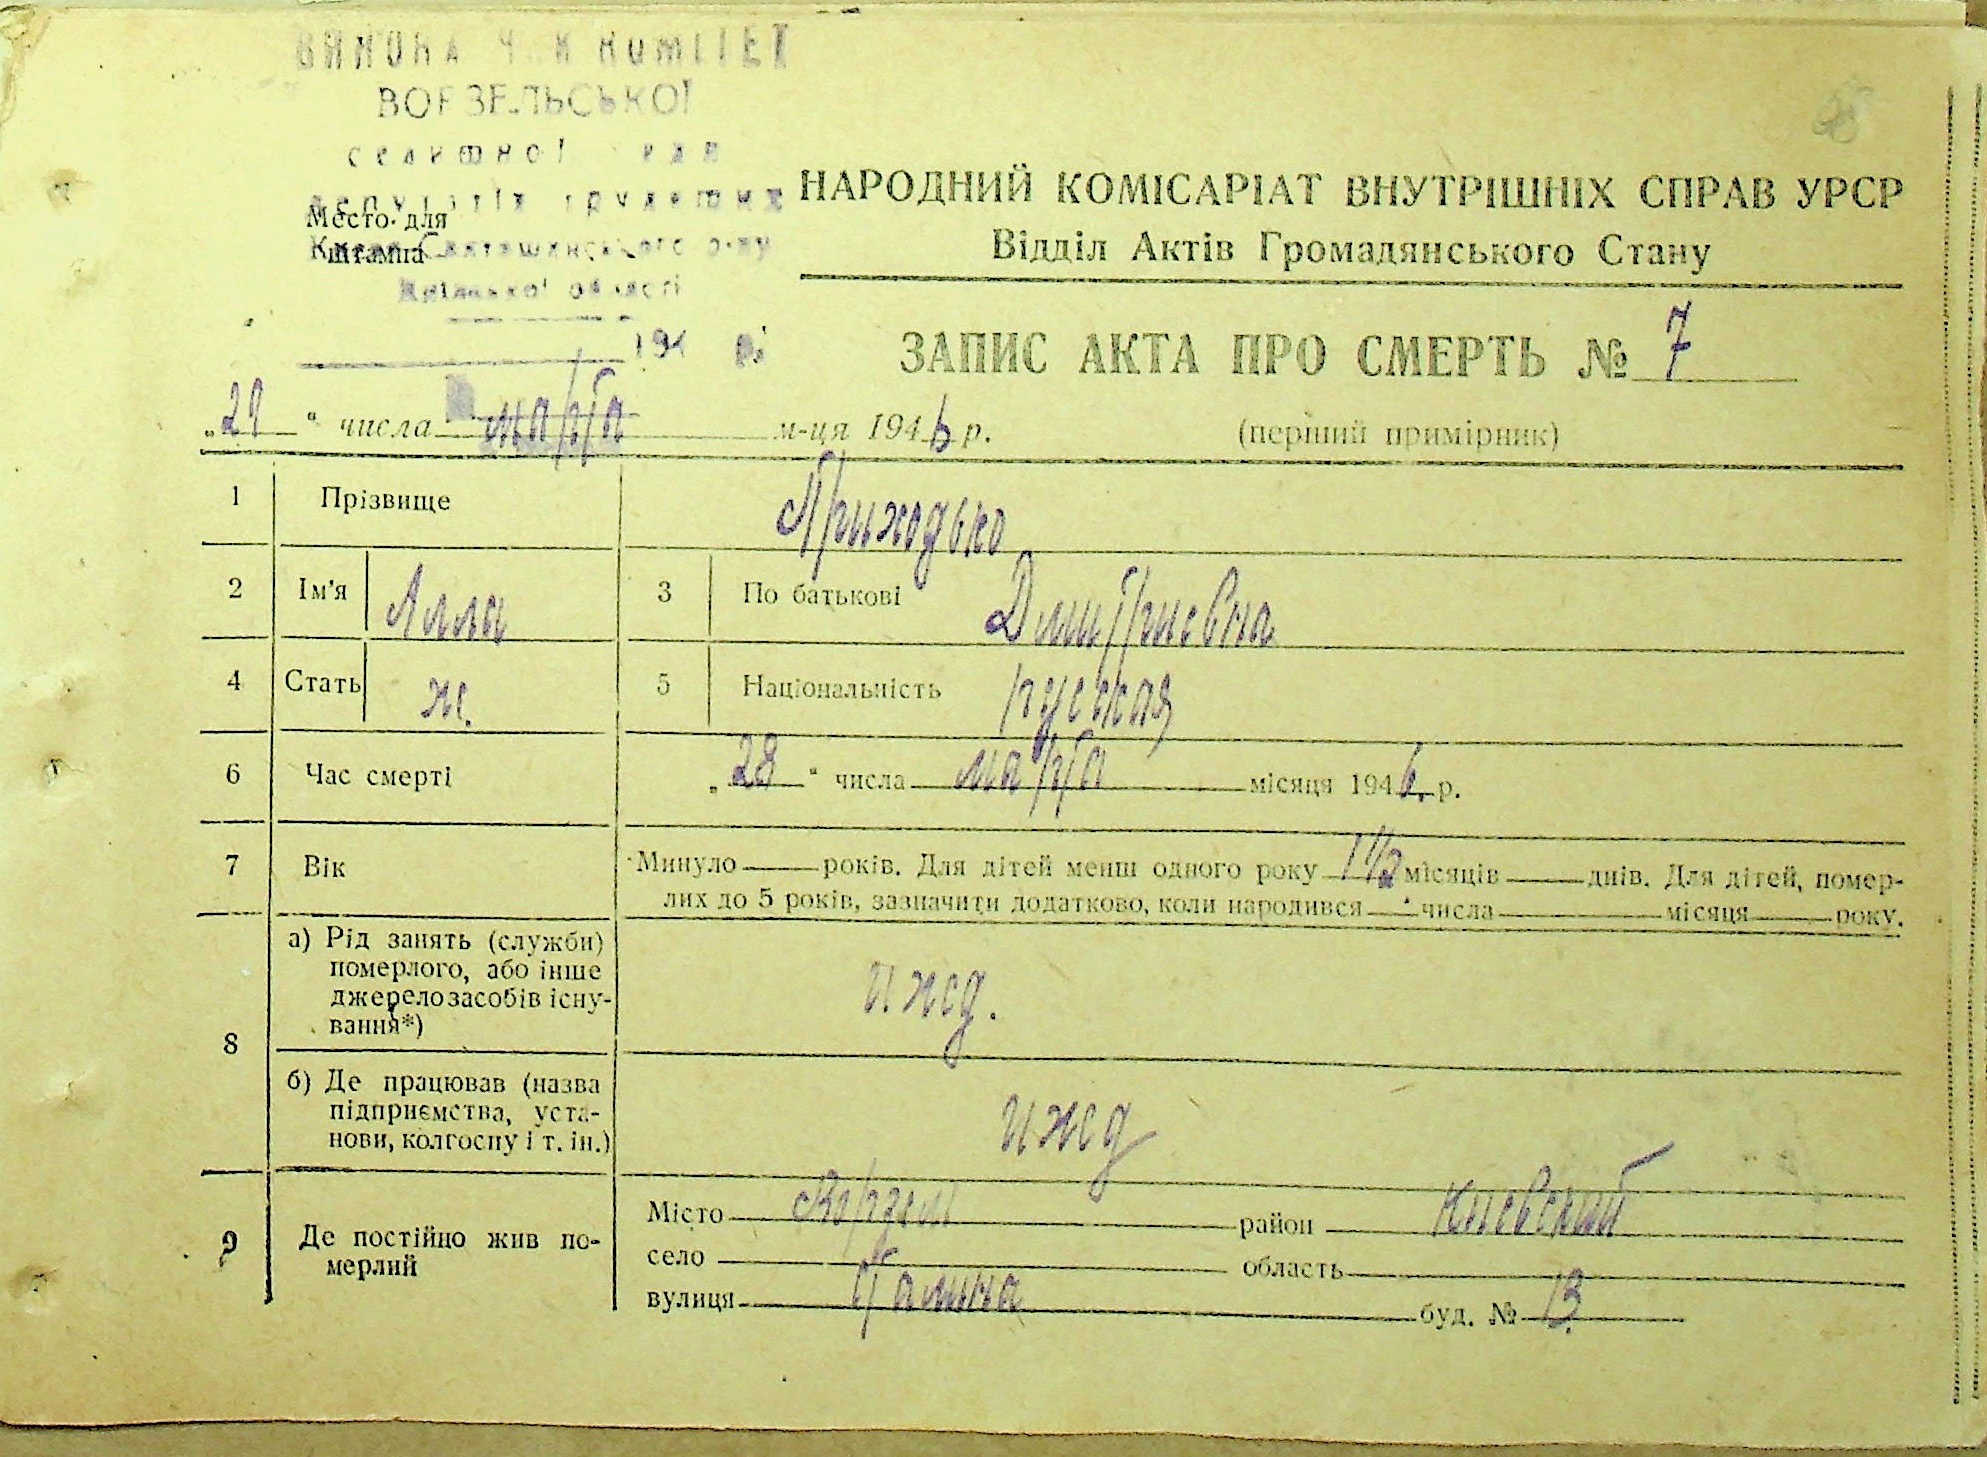 ВОРЗЕЛЬСЬКОЇ
селишної
депутатів трудящих
Место для
штампа
Києво-Святошинського р-ну
Київської області
194 р.
НАРОДНИЙ КОМІСАРІАТ ВНУТРІШНІХ СПРАВ УРСР
Відділ Актів Громадянського Стану
ЗАПИС АКТА ПРО СМЕРТЬ № 7
„29 “ числа марта м-ця 1946 р.
(перший примірник)
1 Прізвище Приходько
2 Ім'я Алла 3 По батькові Дмитриевна
4 Стать ж. 5 Національність руская
6 Час смерті „28 “ числа марта місяця 1946. р.
7 Вік Минуло року років. Для дітей менш одного року 1 1/2 місяців днів. Для дітей, помер-
лих до 5 років, зазначити додатково, коли народився числа місяця року.
8 а) Рід занять (служби)
померлого, або інше
джерело засобів існу-
вання*)
ижд.
б) Де працював (назва
підприємства, уста-
нови, колгоспу і т. ін.)
ижд
9 Де постійно жив по-
мерлий
Місто Ворзель район Киевский
село область
вулиця буд. № 13.